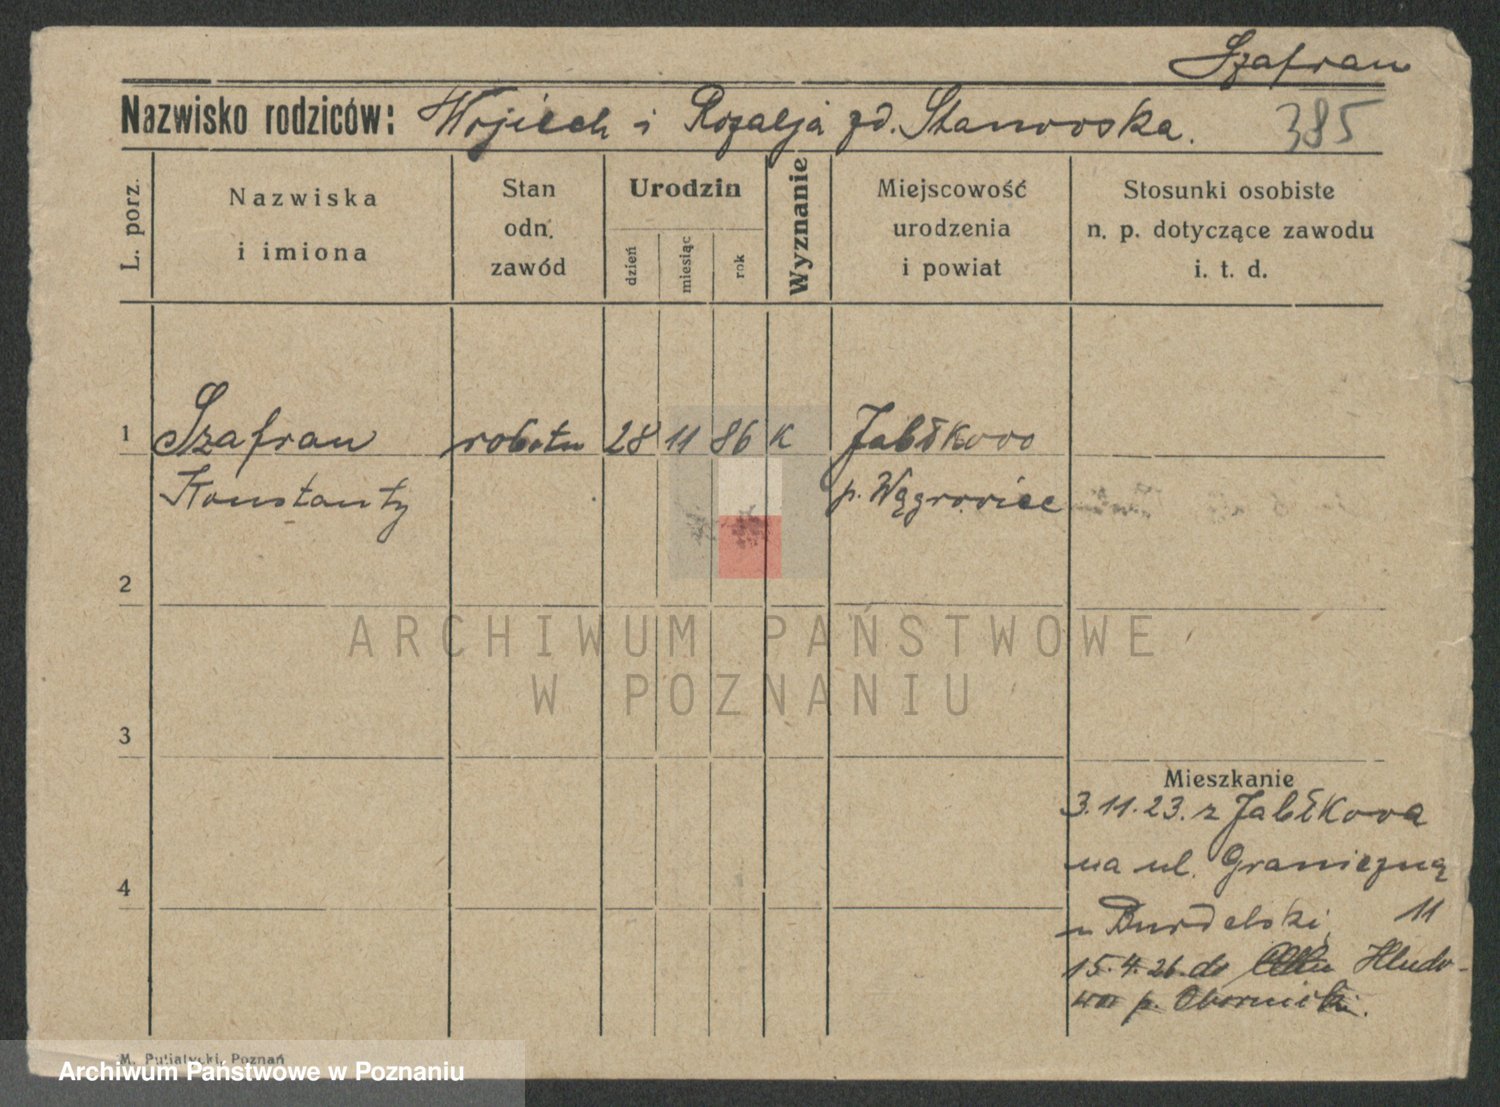 Szafran
Nazwisko rodziców: Wojiech i Rozalja zd. Stanowska. 385
L. porz.
Nazwiska
i imiona
Stan
odn.
zawód
Urodzin
dzień
miesiąc
rok
Wyznanie
Miejscowość
urodzenia
i powiat
Stosunki osobiste
n. p. dotyczące zawodu
i. t. d.
1 Szafran robotn 28 11 86 K Jabłkowo
Konstanty p. Wągrowiec
2
ARCHIWUM PAŃSTWOWE
W POZNANIU
3
Mieszkanie
3.11.23. z Jabłkowa
na ul. Graniczną
4
u Burdelski 11
15.4.26 do
p. Obornicki.
M. Putiatycki, Poznań
Archiwum Państwowe w Poznaniu